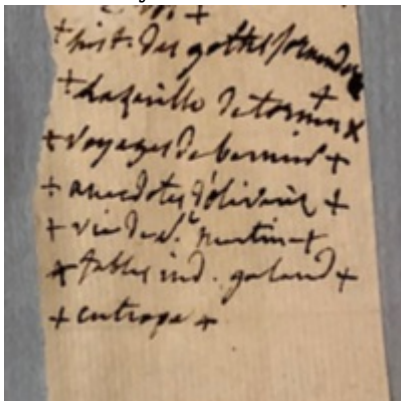 + hist. des goths jornandes
+ Lazarille de tormes +
+ voyages de bernier +
+ anecdotes d'olivarés +
+ vie de st. martin +
+ fables ind. galand +
+ eutrope +